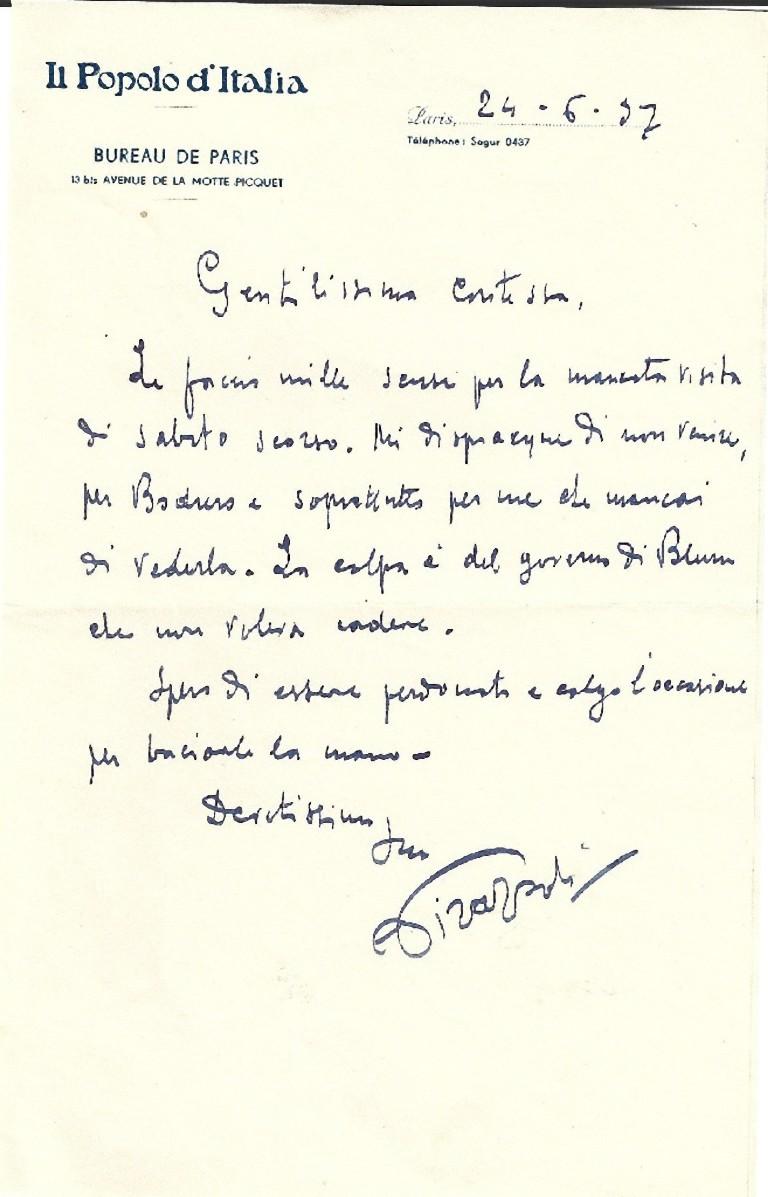 Il Popolo d'Italia
Paris, 24 - 6 - 37
Téléphone: Segur 0437
BUREAU DE PARIS
13 bis AVENUE DE LA MOTTE-PICQUET
Gentilissima Contessa,
Le faccio mille scuse per la mancata visita
di sabato scorso. Mi dispiacque di non venire,
per Bodrero e soprattutto per me che mancai
di vederla. La colpa è del governo di Blum
che non voleva cadere.
Spero di essere perdonato e colgo l'occasione
per baciarle la mano -
Devotissimo
Suo